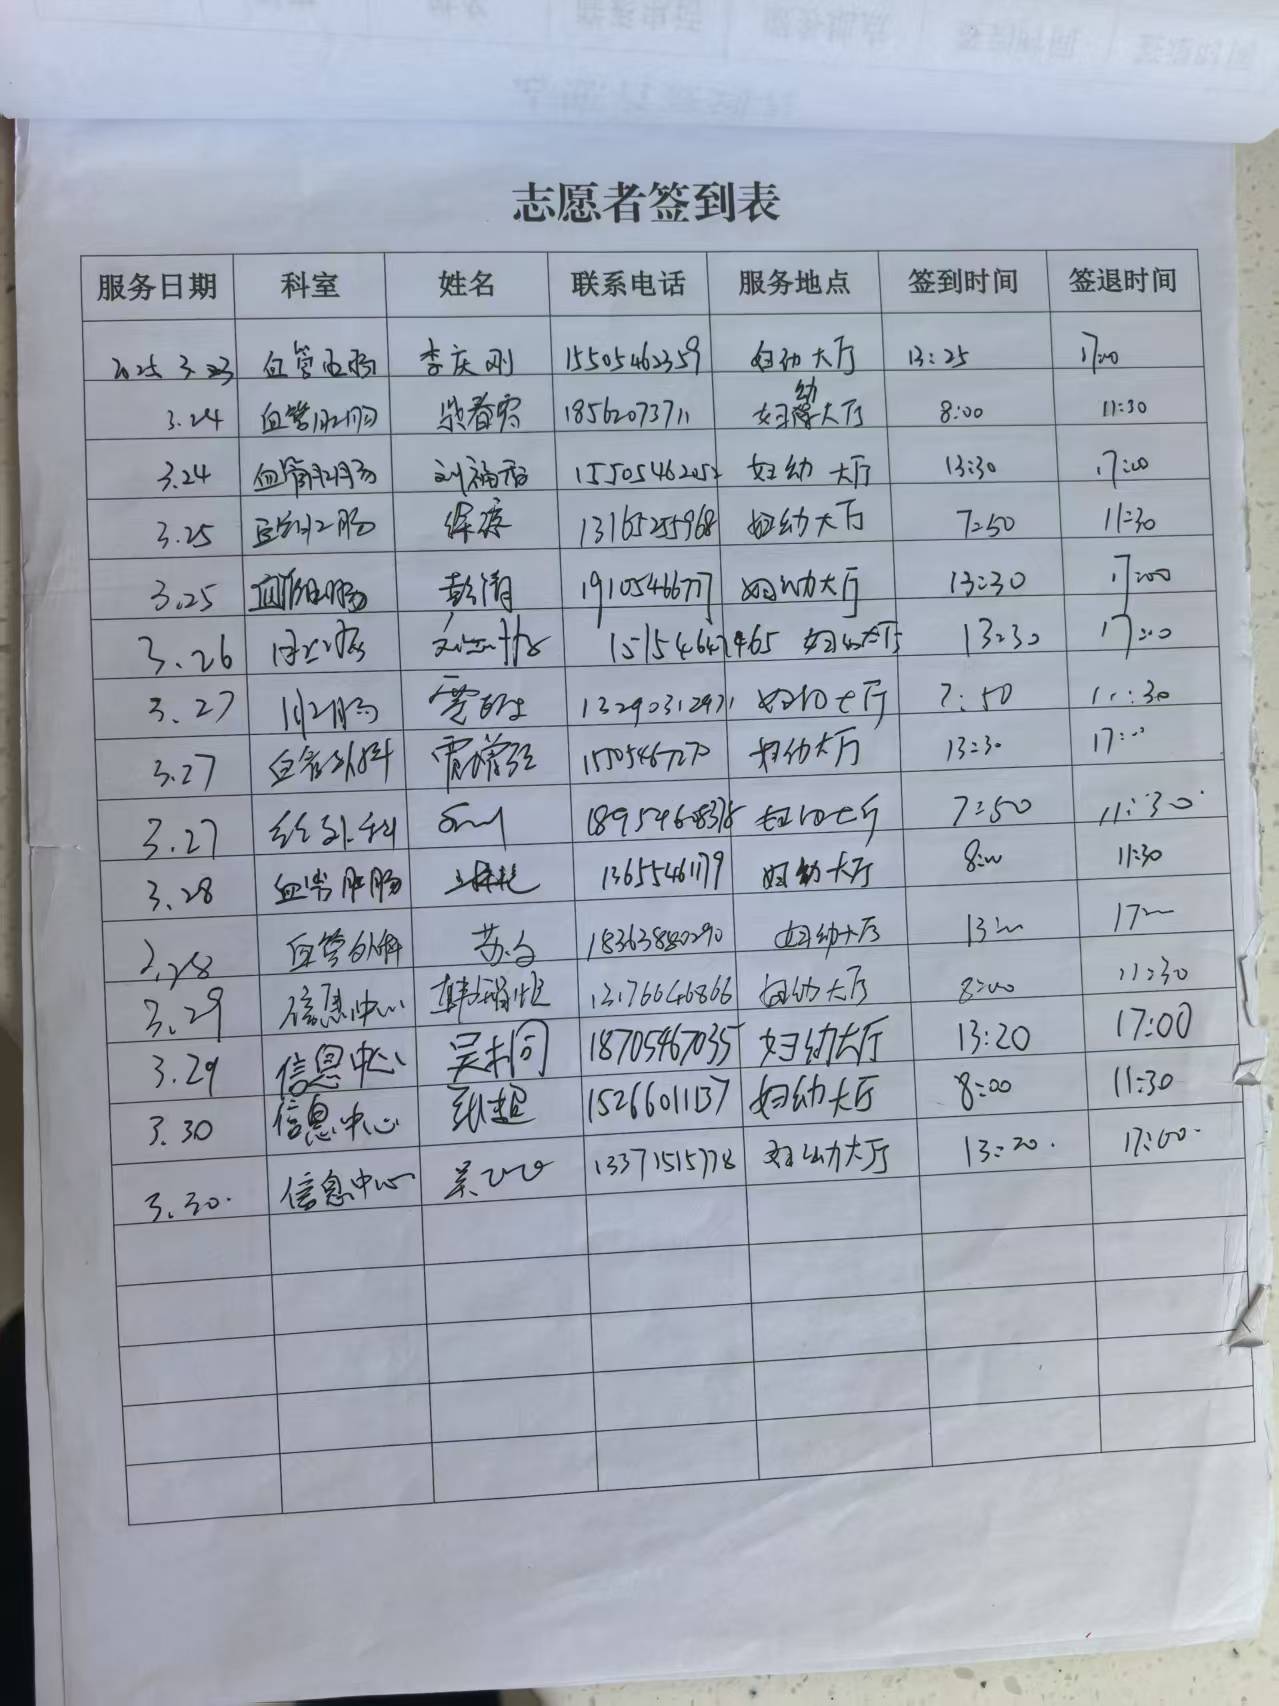 志愿者签到表
服务日期 科室 姓名 联系电话 服务地点 签到时间 签退时间
2025.3.23 血管肛肠 李庆刚 15505462359 妇幼大厅 13:25 17:00
3.24 血管肛肠 18562073711 妇幼大厅 8:00 11:30
3.24 血管肛肠 刘福香 15505462052 妇幼大厅 13:30 17:00
3.25 肛肠 徐 13165255968 妇幼大厅 7:50 11:30
3.25 肛肠 彭清 1910546677 妇幼大厅 13:30 17:00
3.26 妇幼大厅 13:30 17:00
3.27 肛肠 贾 妇幼大厅 7:50 11:30
3.27 血管外科 妇幼大厅 13:30 17:00
3.27 外科 妇幼大厅 7:50 11:30
3.28 血管肛肠 13655461179 妇幼大厅 8:00 11:30
3.28 血管外科 苏 18363880290 妇幼大厅 13:00 17:00
3.29 信息中心 韩 13176646866 妇幼大厅 8:00 11:30
3.29 信息中心 吴树同 18705467035 妇幼大厅 13:20 17:00
3.30 信息中心 张超 15266011137 妇幼大厅 8:00 11:30
3.30. 信息中心 吴 13371515778 妇幼大厅 13:20. 17:00.